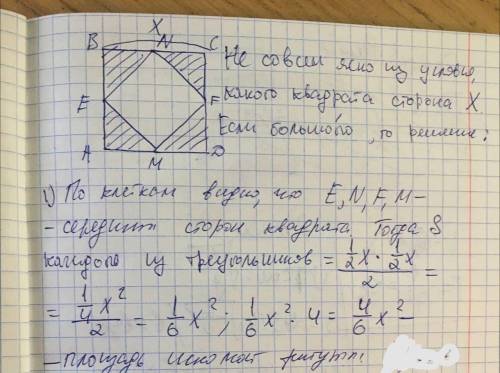 X
B N C
Не совсем ясно из условия,
E F какого квадрата сторона X.
Если большого, то решение:
A M D
1) По клеткам видно, что E, N, F, M -
- середины сторон квадрата. Тогда S
каждого из треугольников = (1/2 x · 1/2 x)/2 =
= (1/4 x²)/2 = 1/6 x² ; 1/6 x² · 4 = 4/6 x² -
- площадь искомой фигуры.